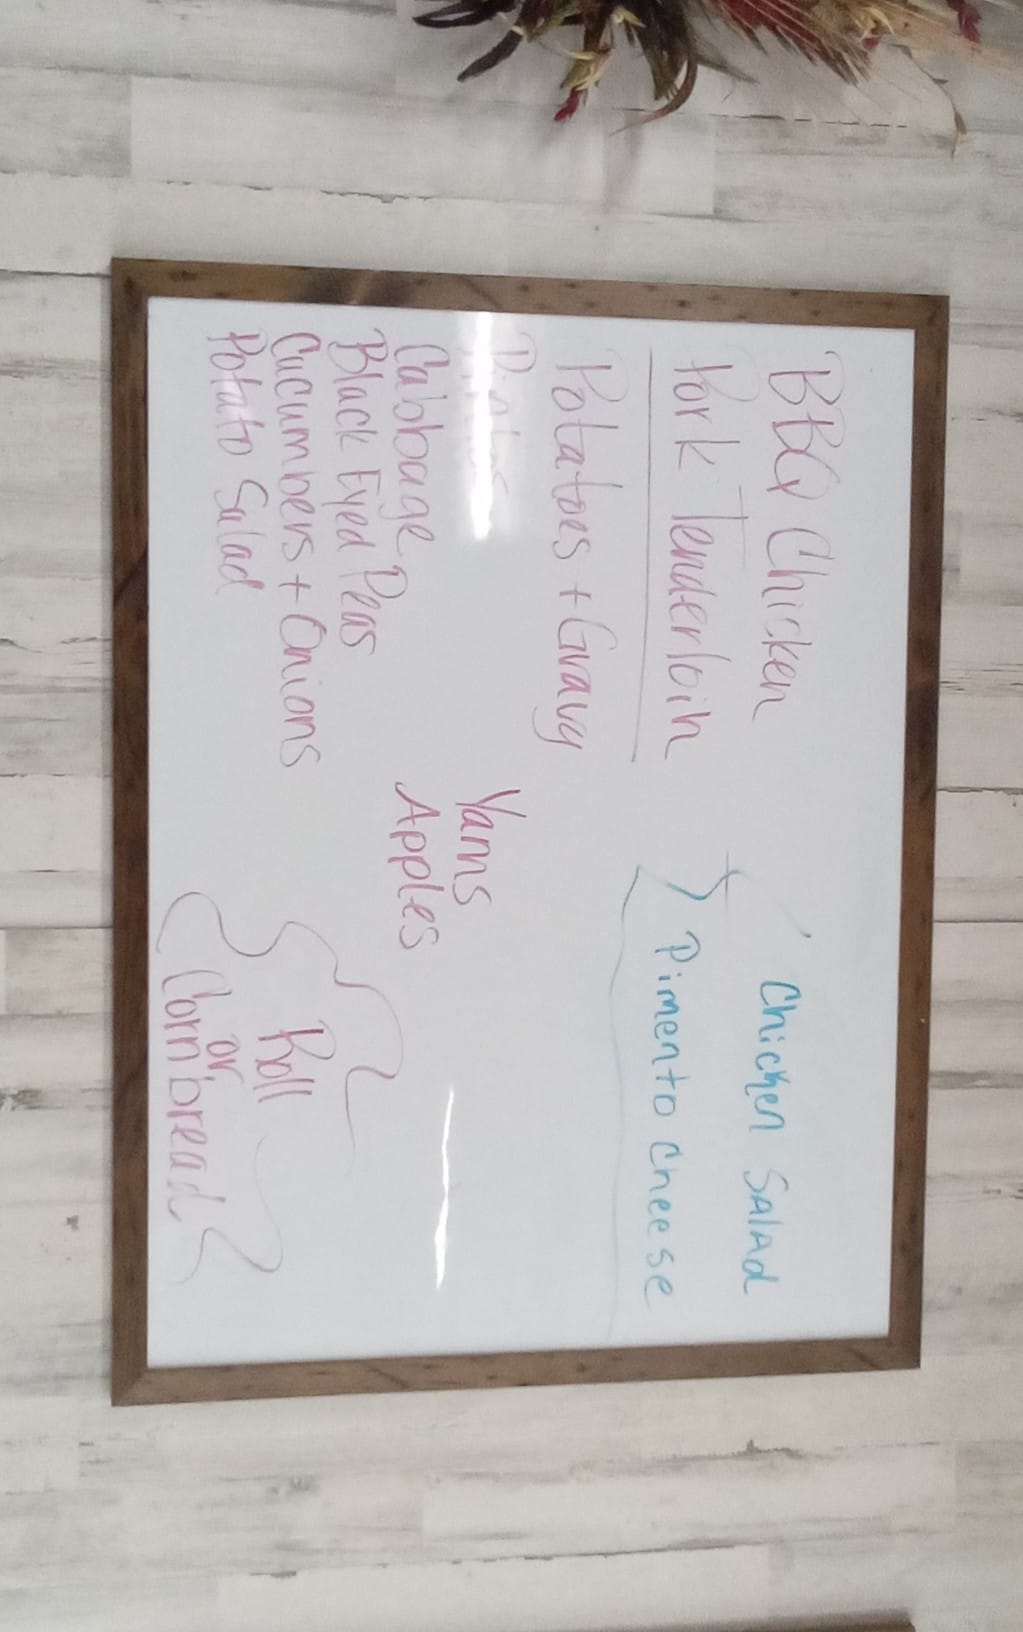 BBQ Chicken
Pork Tenderloin
Chicken SALAd
Pimento cheese
Potatoes + Gravy
Pintos
Cabbage
Black Eyed Peas
Cucumbers + Onions
Potato Salad
Yams
Apples
Roll
or
Cornbread